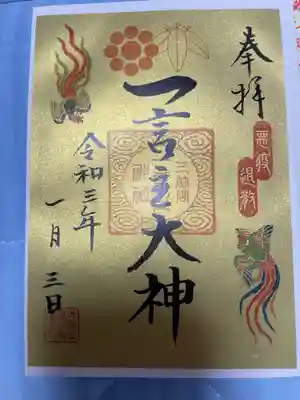 奉拝
悪疫
退散
一言主大神
令和三年
一月三日